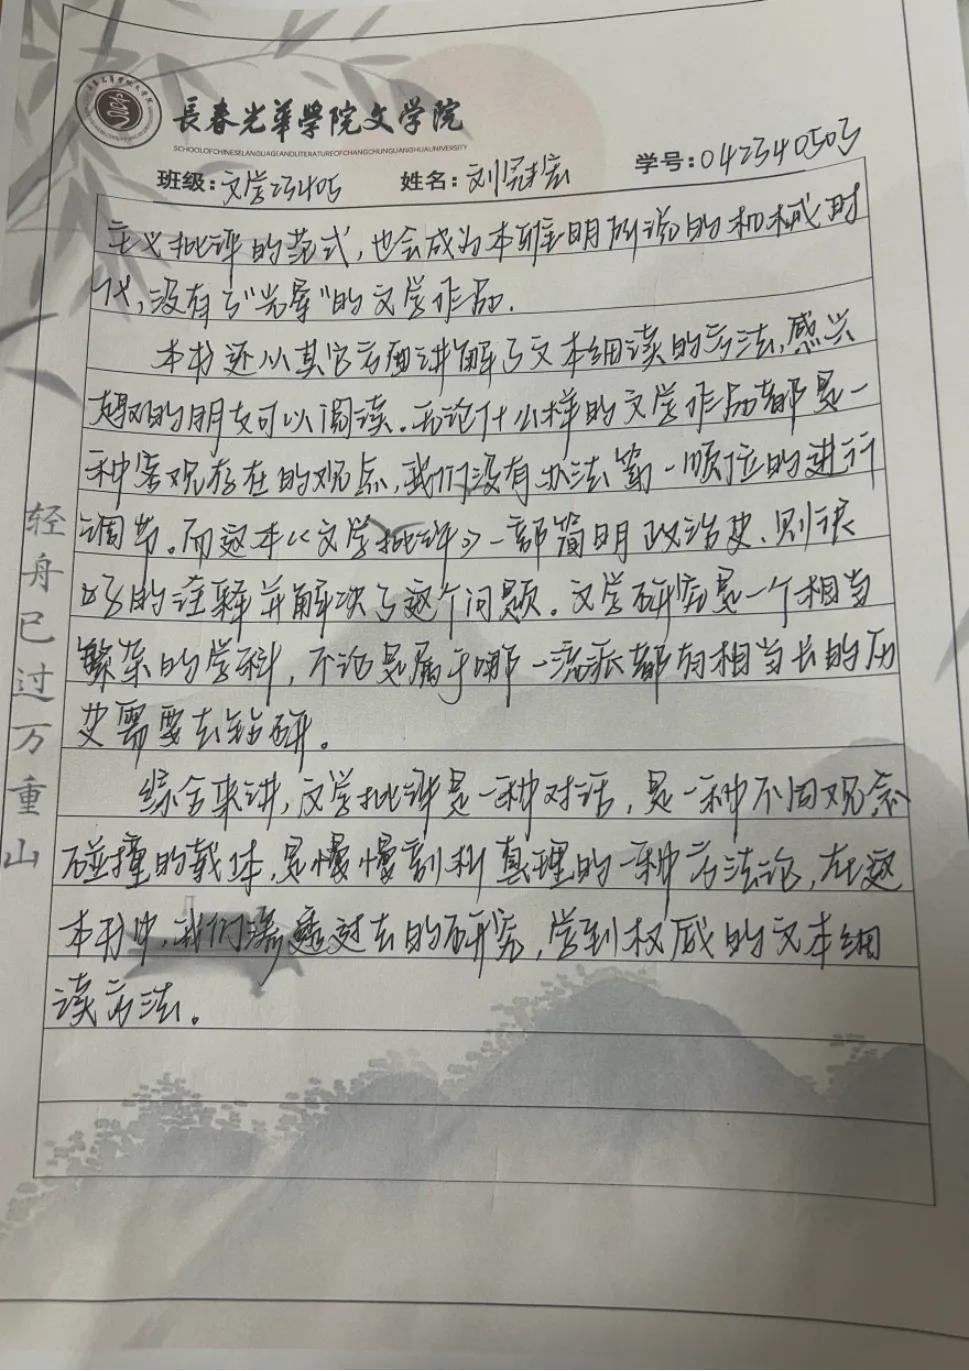 長春光華學院文学院
SCHOOLOFCHINESELANGUAGEANDLITERATUREOFCHANGCHUNGUANGHUAUNIVERSITY
班级:文学23405 姓名:刘 学号:042340503
主义批评的范式,也会成为本雅明所说的机械时
代,没有了“光晕”的文学作品.
本书还从其它方面讲解了文本细读的方法,感兴
趣的朋友可以阅读.无论什么样的文学作品都是一
种客观存在的观点,我们没有办法第一顺位的进行
调节。而这本《文学批评》一部简明政治史.则很
好的注释并解决了这个问题。文学研究是一个相当
繁杂的学科,不论是属于哪一流派都有相当长的历
史需要去钻研。
综合来讲,文学批评是一种对话,是一种不同观念
碰撞的载体,是慢慢剖析真理的一种方法论,在这
本书中,我们渗透过去的研究,学到权威的文本细
读方法。
轻舟已过万重山